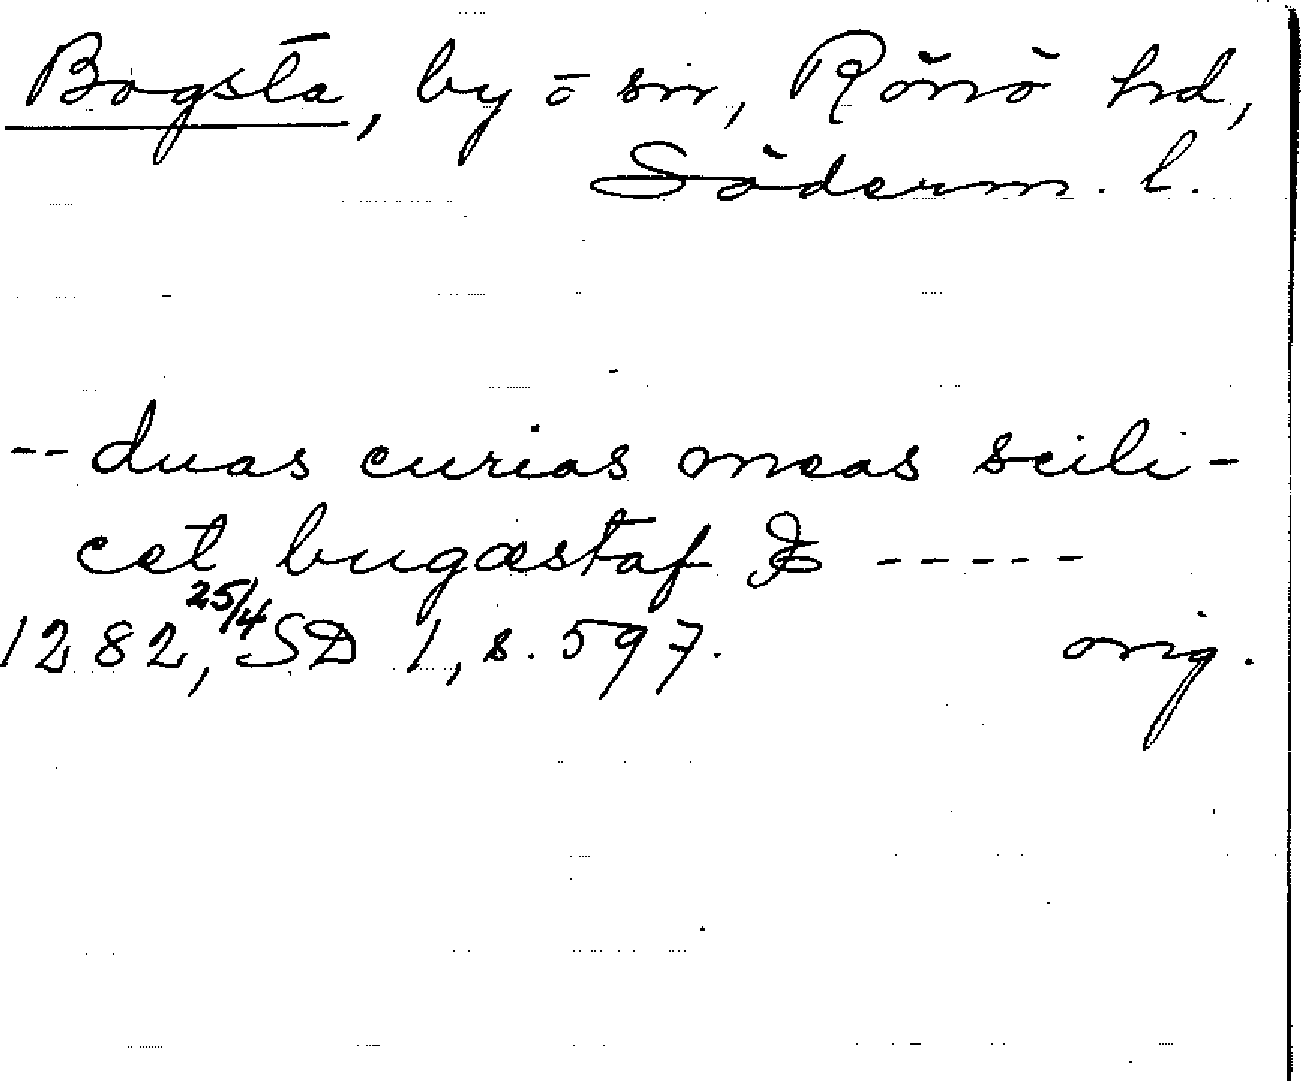 Bogsta, by o sn, Rönö hd,
Söderm. l.
-- duas curias meas scili-
cet bugæstaf & -----
1282, 25/4 SD 1, s. 597. orig.